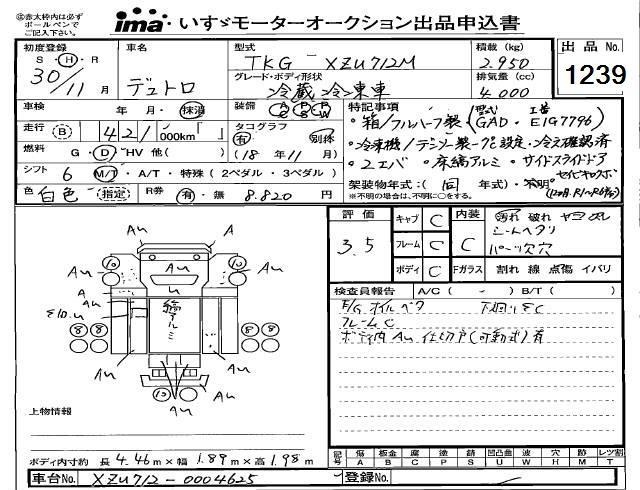 ㊟赤太枠内は必ず
ボールペンで
ご記入下さい。
ima いすゞモーターオークション出品申込書
初度登録 車名 型式 TKG - XZU712M 積載(kg) 2.950 出品 No.
S・H・R 30/11月 デュトロ グレード・ボディ形状 冷蔵冷凍車 排気量(cc) 4.000 1239
車検 年・月・抹消 装備 AC PS PW 特記事項
・箱/フルハーフ製(型式 GAD- 工番 E1G7796)
走行 (B) 421,000km「 」 タコグラフ 有 別体 ・冷凍機/デンソー製-7℃設定・冷え確認済
燃料 G・D・HV 他( ) (18年11月) ・2エバ ・床縞アルミ ・サイドスライドドア
シフト 6 M/T・A/T・特殊(2ペダル・3ペダル) 架装物年式:(同 年式)・不明
※不明の場合は、不明に○をする。
色 白色 指定 R券 有・無 8.820円
評価 3.5 キャブ C 内装 C 汚れ 破れ ヤニ
シートヘタリ
フレーム C パーツ欠穴
ボディ C Fガラス 割れ 線 点傷 イバリ
検査員報告 A/C( - ) B/T( )
E/G オイルベタ 下回りEC
フレームC
ボディ内AU 仕切戸(可動式)有
A A
AU
10 10
AU AU
A
AU
縞アルミ
8 8 8 8
AU AU
AU AU
10
AU
上物情報
ボディ内寸約 長 4.46m×幅 1.89m×高 1.98m
記号 傷 A 板金 B 腐 C 塗 P 請 S 凹凸凸 U 波 W 穴 H 跡 M レンズ割 T
車台No. XZU712-0004625 登録No.